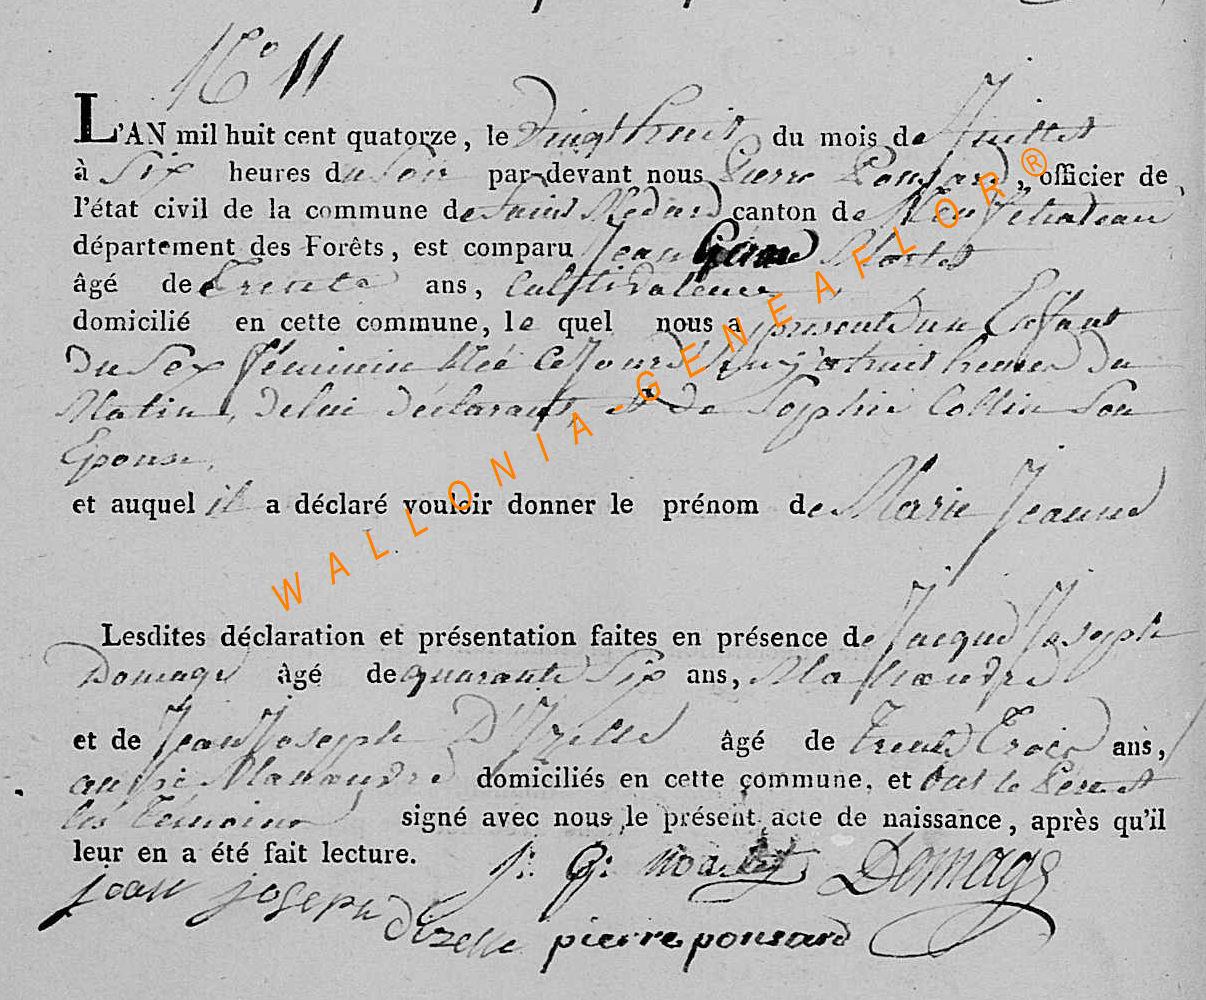 N° 11
L'AN mil huit cent quatorze, le Vingt huit du mois de Juillet
à Six heures du Soir par-devant nous Pierre Ponsard, officier de
l'état civil de la commune de Saint Médard canton de Neufchateau
département des Forêts, est comparu Jean
âgé de Trente ans, Cultivateur
domicilié en cette commune, le quel nous a présenté un Enfant
du Sex féminin Née Ce Jourd'huy a huit heures du
Matin, de lui déclarant, et de Sophie Collin Son
Epouse,
et auquel il a déclaré vouloir donner le prénom de Marie Jeanne
Lesdites déclaration et présentation faites en présence de Jacque Joseph
Domage âgé de quarante Six ans, Manoeuvre
et de Jean Joseph D'Izelle âgé de trente Trois ans,
aussi Manoeuvre domiciliés en cette commune, et ont le Pere et
les Témoins signé avec nous le présent acte de naissance, après qu'il
leur en a été fait lecture.
j: g: Domage
jean joseph dizelle pierre ponsard
WALLONIA-GENEAFLOR®